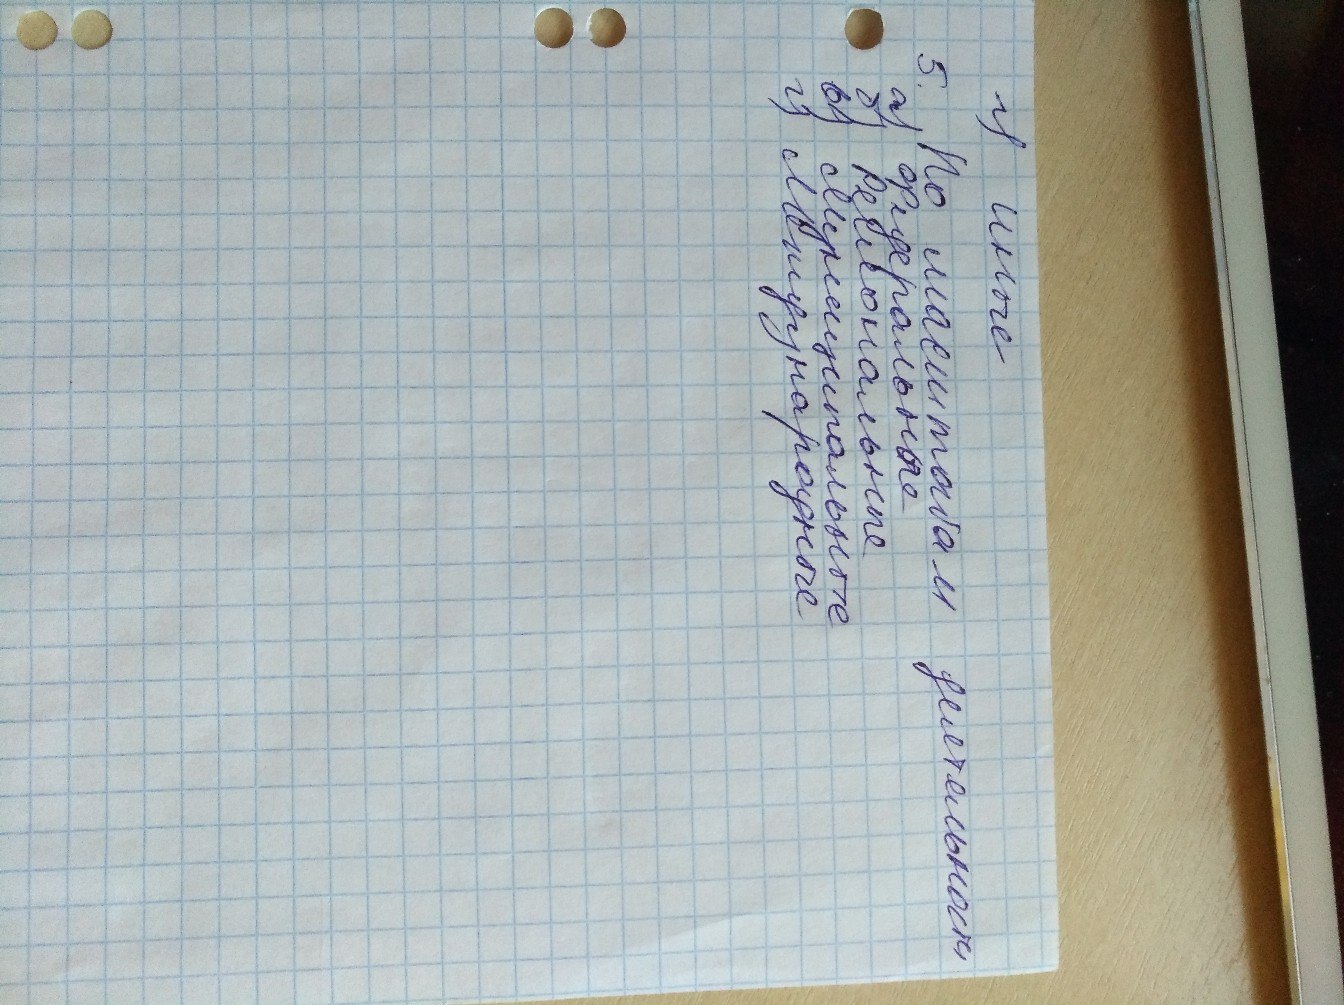 г) иные
5. По масштабам деятельности
а) Федеральные
б) Региональные
в) Муниципальные
г) Международные